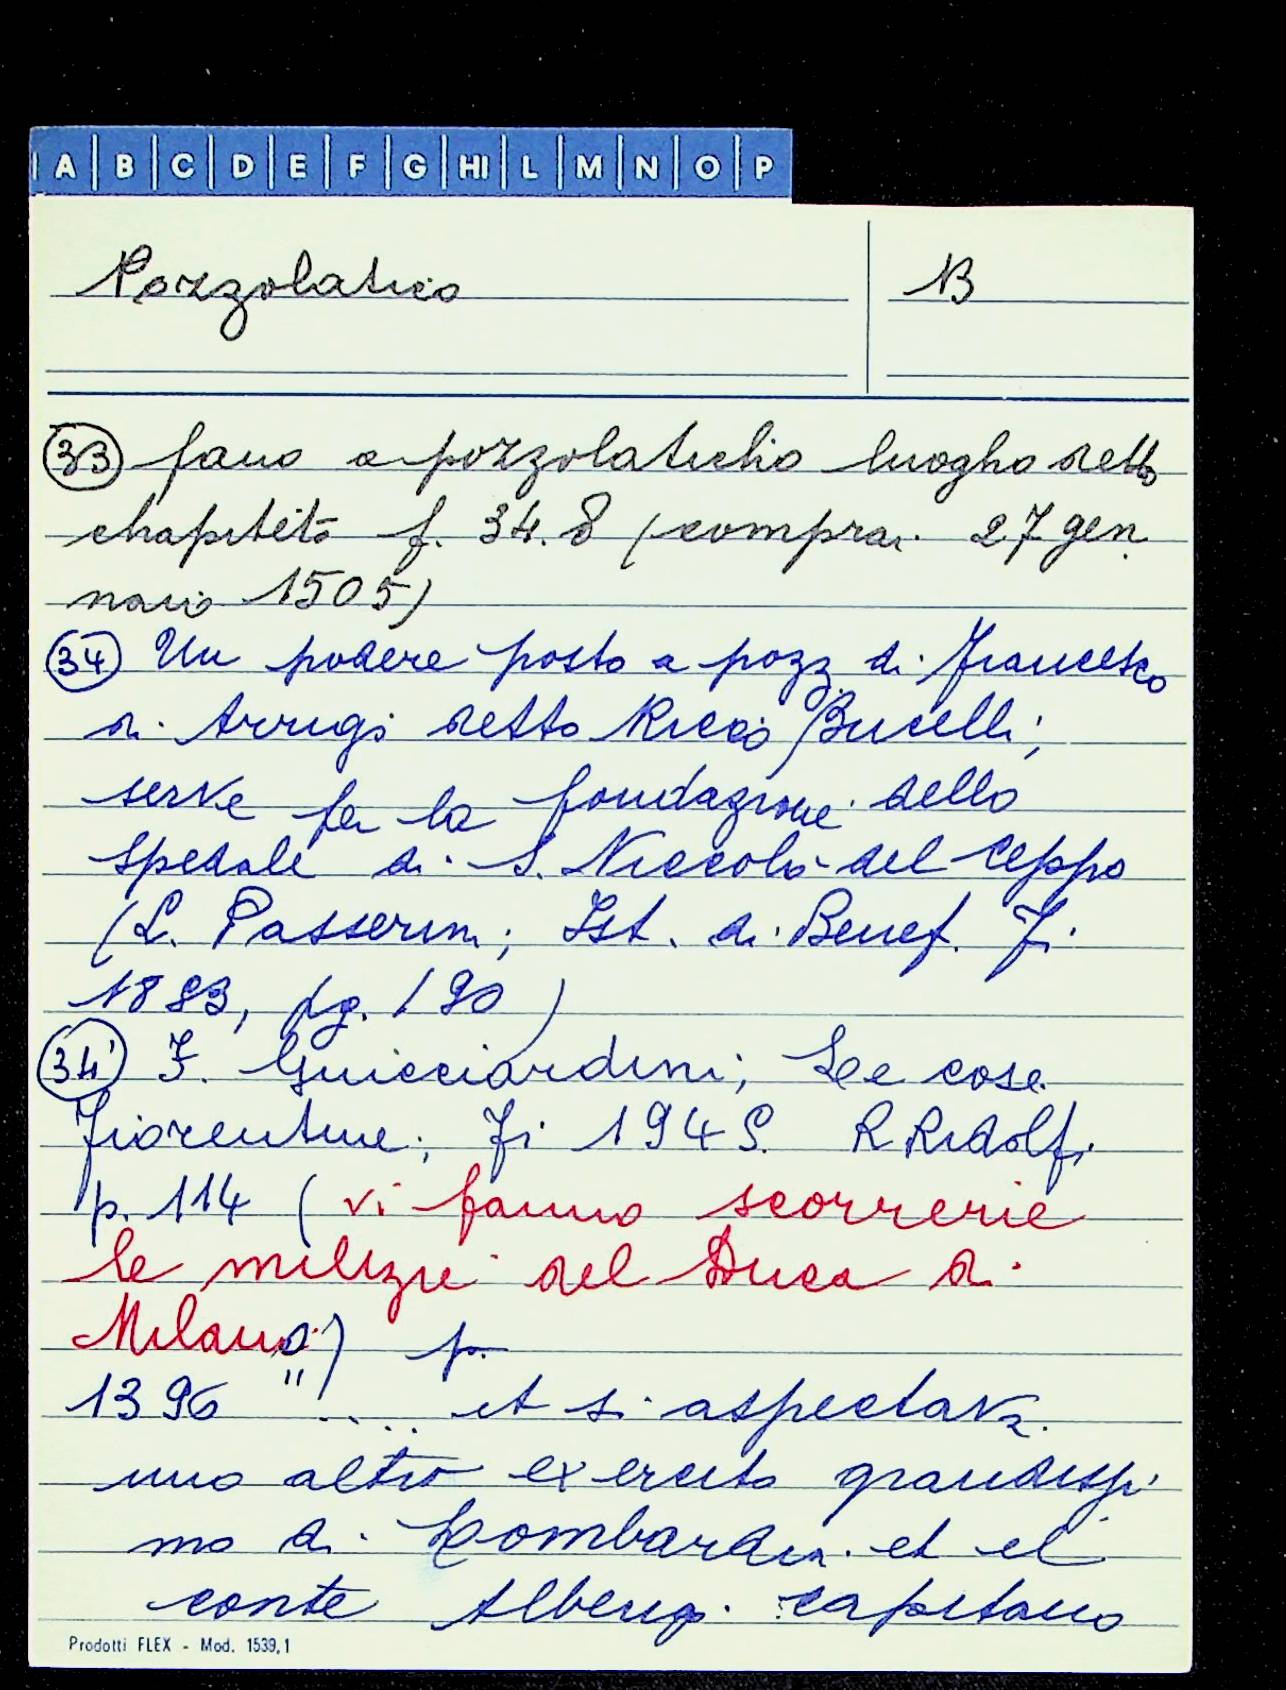 A B C D E F G HI L M N O P
Pozzolatico B
33 fano a pozzolatichio luogho detto
chapiteto f. 34.8 (compra. 27 gen
naio 1505)
34 Un podere posto a pozz. di Francesco
di Arrigo detto Ricco Bucelli;
serve per la fondazione dello
spedale di S. Niccolò del Ceppo
(L. Passerini; Ist. di Benef. Fi.
1883, pg. 190)
34' F. Guicciardini; Le cose
Fiorentine; Fi 1945. R Ridolfi
p. 114 (vi fanno scorrerie
le milizie del Duca di
Milano) p.
1396 " .... et si aspectava
uno altro exercito grandissi
mo di Lombardia et el
conte Alberigo capitano
Prodotti FLEX - Mod. 1539,1